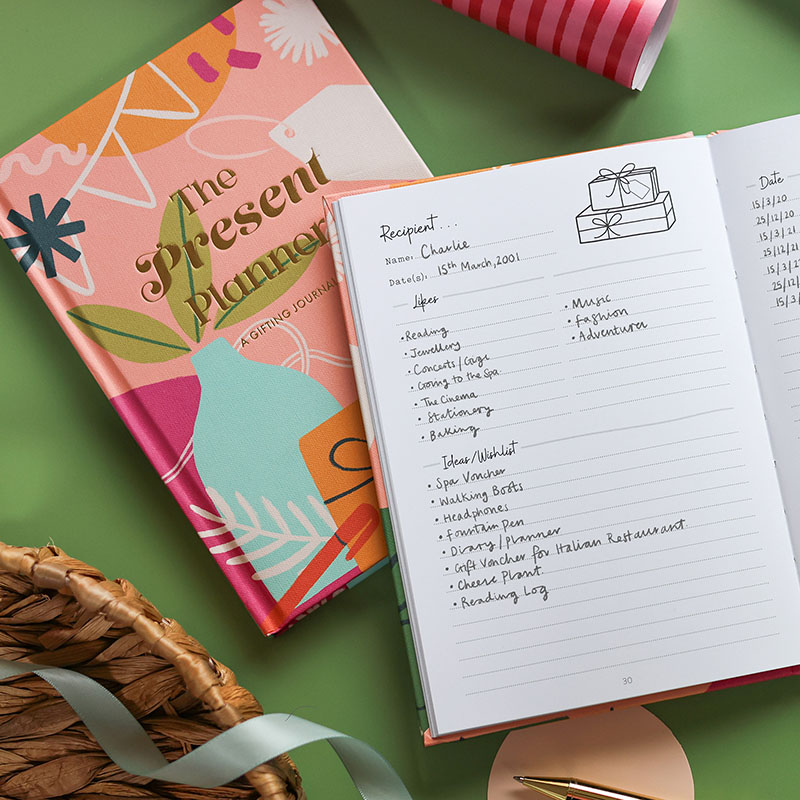 The
Present
Planner
A GIFTING JOURNAL
Recipient...
Name: Charlie
Date(s): 15th March, 2001
Likes
• Reading
• Jewellery
• Concerts/Gigs
• Going to the Spa
• The Cinema
• Stationery
• Baking
• Music
• Fashion
• Adventure
Ideas/Wishlist
• Spa Voucher
• Walking Boots
• Headphones
• Fountain Pen
• Diary/planner
• Gift Voucher for Italian Restaurant.
• Cheese Plant.
• Reading Log
30
Date
15/3/20
25/12/20
15/3/21
25/12/21
15/3/2
25/12/
15/3/